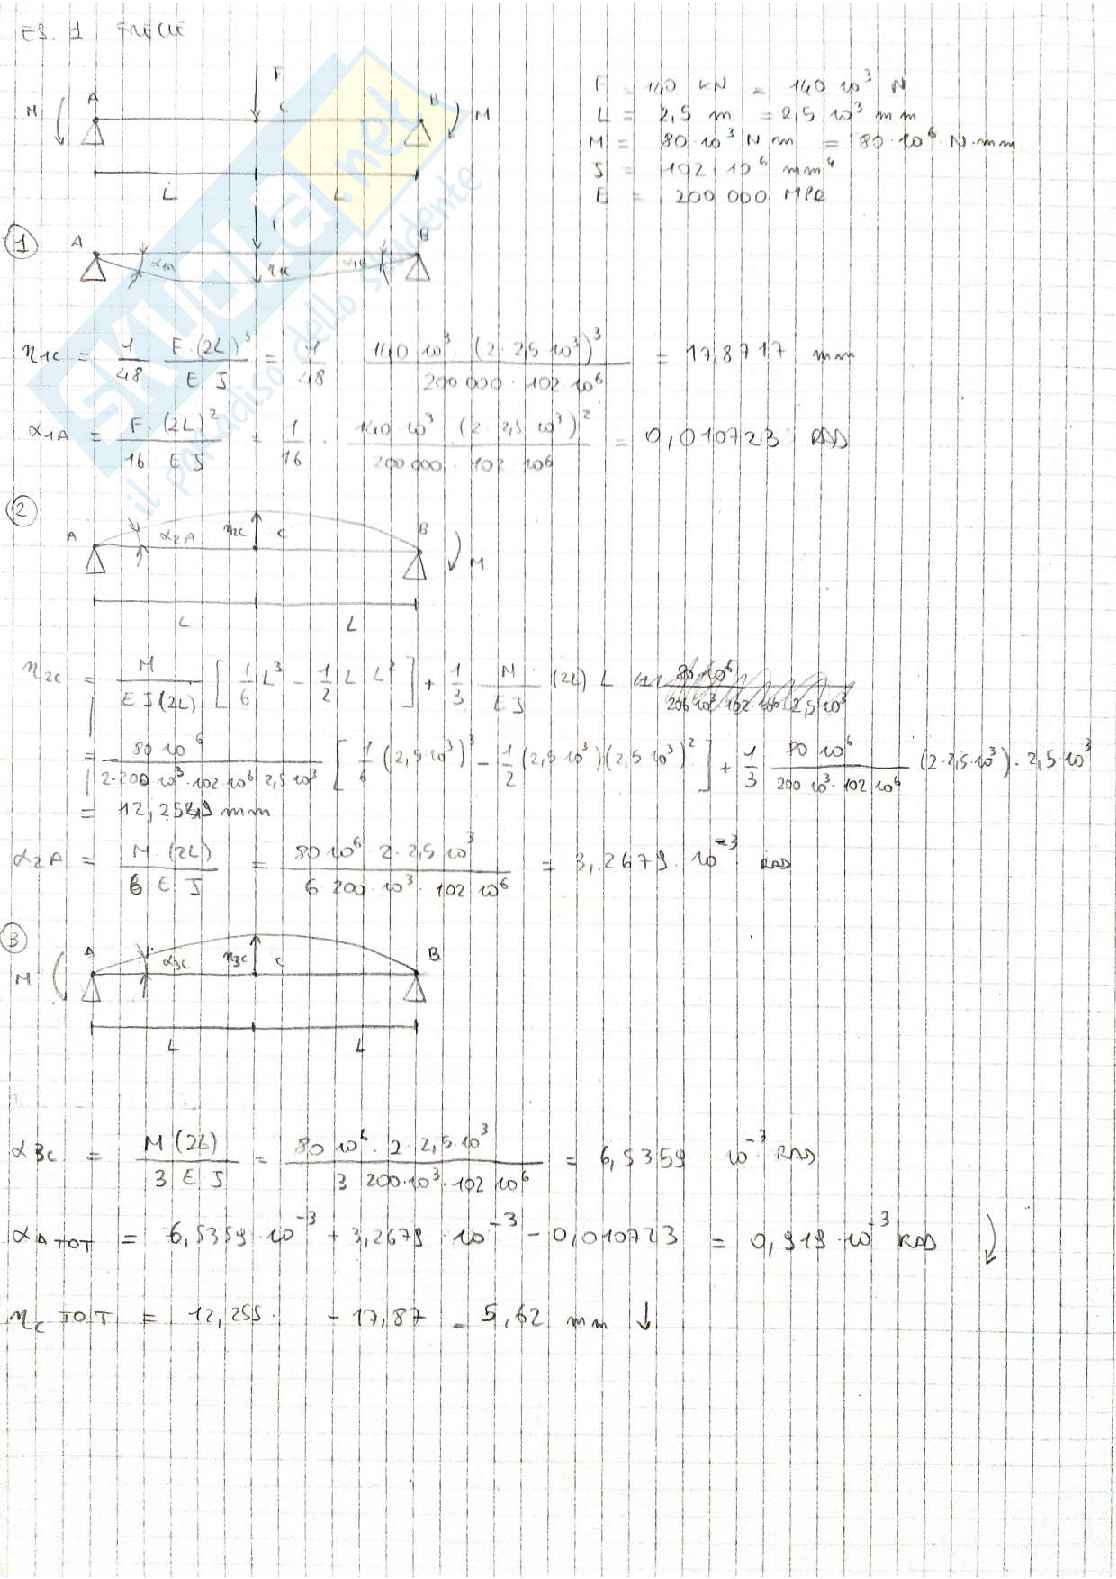 ES. 1 FRECCE
F = 140 KN = 140 10³ N
L = 2,5 m = 2,5 10³ mm
M = 80·10³ N m = 80·10⁶ N·mm
J = 102 10⁶ mm⁴
E = 200 000 MPa
M A F C B M
L L
① A α1A F η1C B
η1C = 1/48 F·(2L)³/EJ = 1/48 140 10³ (2·2,5 10³)³/200 000 · 102 10⁶ = 17,8717 mm
α1A = F·(2L)²/16 EJ = 1/16 · 140 10³ (2·2,5 10³)²/200 000 · 102 10⁶ = 0,010723 RAD
② A α2A η2C C B M
L L
η2C = M/EJ(2L) [1/6 L³ - 1/2 L L²] + 1/3 M/EJ (2L) L
= 80 10⁶/2·200 10³·102·10⁶ 2,5 10³ [1/6 (2,5·10³)³ - 1/2 (2,5 10³)(2,5 10³)²] + 1/3 80 10⁶/200 10³·102 10⁶ (2·2,5·10³)·2,5·10³
= 12,2549 mm
α2A = M·(2L)/6 E J = 80 10⁶ 2·2,5 10³/6 200·10³·102 10⁶ = 3,2679·10⁻³ RAD
③ M A α3C η3C C B
L L
α3C = M (2L)/3 E J = 80 10⁶·2·2,5·10³/3 200·10³·102 10⁶ = 6,5359 10⁻³ RAD
αA TOT = 6,5359·10⁻³ + 3,2679·10⁻³ - 0,010723 = 0,919·10⁻³ RAD
ηC TOT = 12,255 - 17,87 = 5,62 mm ↓
SKUOLA.net
il paradiso dello studente